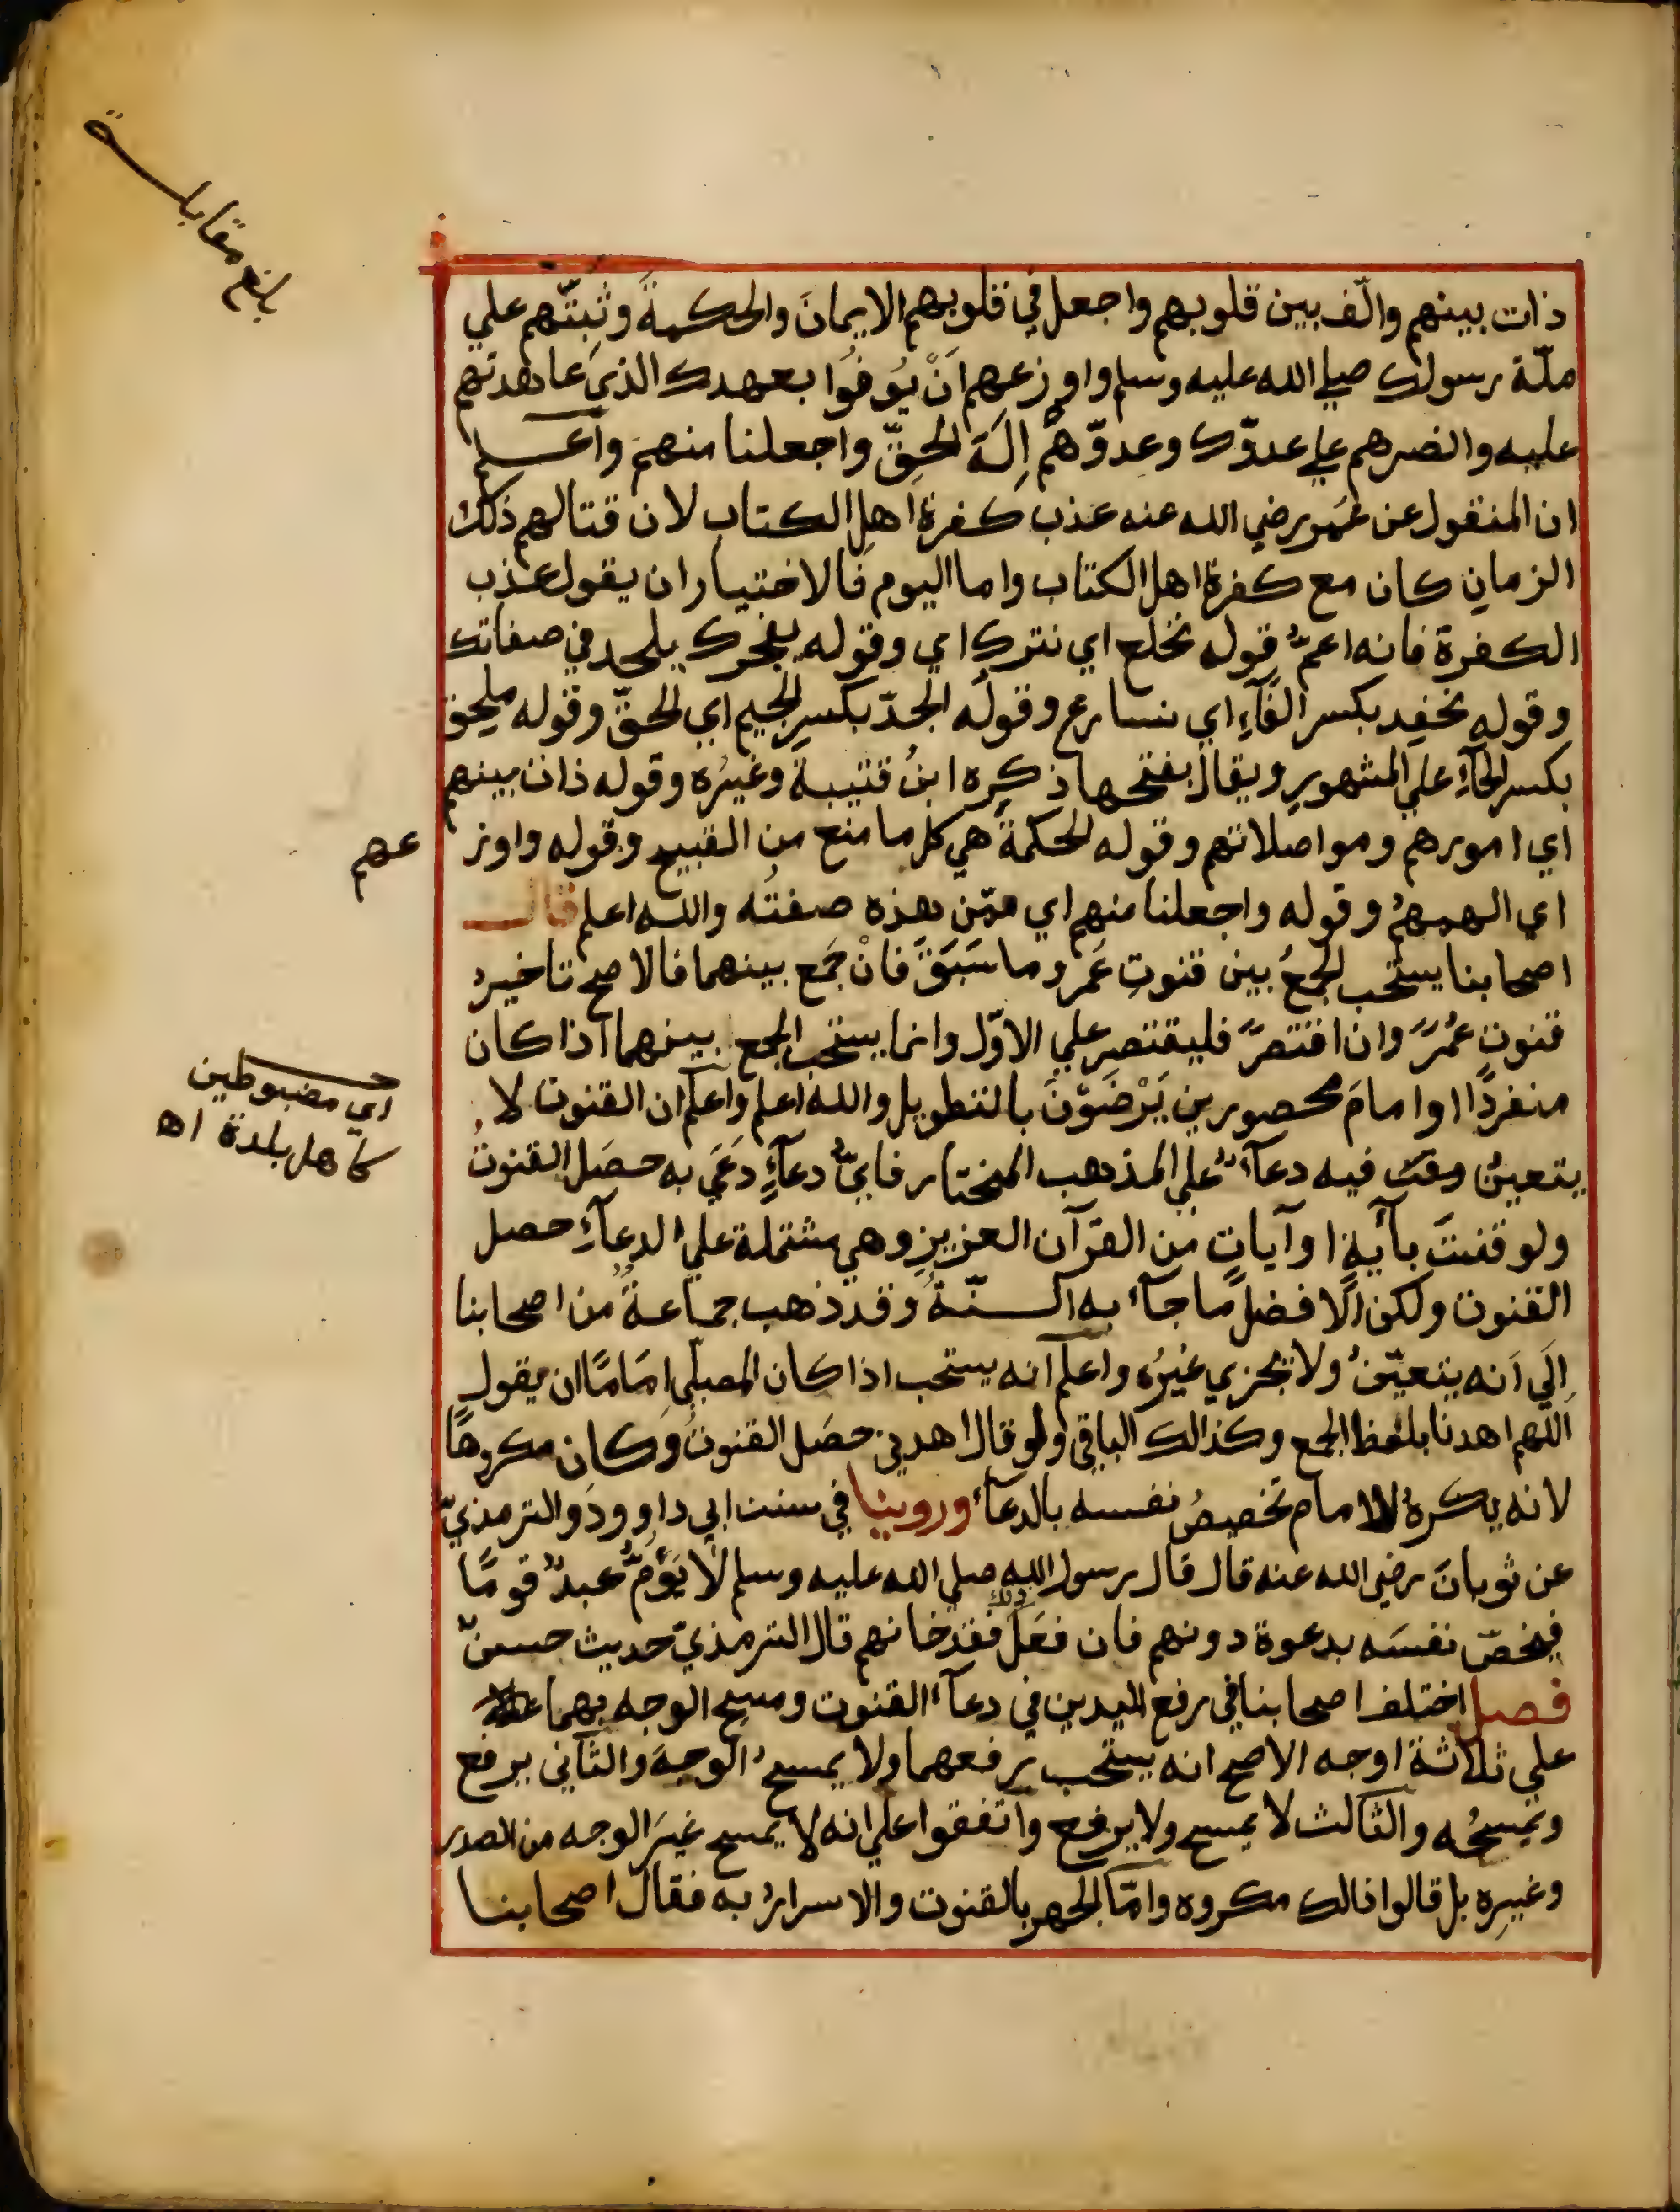 بلغ مقابلة
ذات بينهم والّف بين قلوبهم واجعل في قلوبهم الايمانَ والحكمةَ وثبّتْهم علي
ملّة رسولك صلي الله عليه وسلم واوزعهم اَنْ يُوفُوا بعهدك الذيَ عاهدتهم
عليه وانصرهم علي عدوّك وعدوّهمْ اِلَهَ الحقِّ واجعلنا منهم واعلم
ان المنقول عن عُمَر رضي الله عنه عذب كفرة اهلِ الكتاب لان قتالهم ذلك
الزمانِ كان مع كفرة اهل الكتاب واما اليوم فالاختيار ان يقول عذب
الكفرة فانه اعمُّ قوله نخلع اي نترك اي وقوله يفجرك يلحد في صفاتك
وقوله نحفِد بكسر الفآءِ اي نسارع وقولُه الجدّ بكسرِ الجيم اي الحقّ وقوله ملحِق
بكسرِ الحآءِ علي المشهورِ ويقال بفتحها ذكره ابنُ قتيبة وغيرُه وقوله ذات بينهم
اي امورهم ومواصلاتهم وقوله الحكمةَ هي كل ما منع من القبيح وقوله واوز
عهم
اي الهمهمْ وقوله واجعلنا منهم اي ممّن هذه صفتُه والله اعلم قال
اصحابنا يستحب الجمعُ بين قنوتِ عُمَر وما سَبَقَ فانْ جَمَع بينهما فالاصح تاخيرُ
قنوتِ عُمَرَ وان اقتصَرَ فليقتصِر علي الاوّل وانما يستحب الجمع بينهما اذا كان
منفردًا او امامَ محصورين يَرْضَوْنَ بالتطويل والله اعلم واعلم ان القنوت لا
اي مضبوطين
كاهل بلدة اه
يتعينُ فيه دعآءٌ علي المذهب المختار فايُّ دعآءٍ دَعَي به حصَل القنوتُ
ولو قنتَ بآيةٍ او آياتٍ من القرآن العزيزِ وهي مشتملة علي الدعآءِ حصل
القنوت ولكن الافضل ما جآء به السنّةُ وقد ذهب جماعةٌ من اصحابنا
اِلَي اَنه يتعيّنُ ولا يجزي غيرُه واعلم انه يستحب اذا كان المصلّي اِمَامًا ان يقول
اَللّهم اهدنا بلفظ الجمع وكذالك الباقي ولو قال اهدني حصَل القنوتُ وكان مكروهًا
لانه يكرهُ للامام تخصيصُ نفسه بالدعآء وروينا في سنن ابي داوودَ والترمذيّ
عن ثوبانَ رضي الله عنه قال قال رسول الله صلي الله عليه وسلم لا يَؤمُّ عبدٌ قومًا
فيخصّ نفسَه بدعوة دونهم فان فعَلَ ذلك فقد خانهم قال الترمذيّ حديث حسنٌ
فصل اختلف اصحابنا في رفع اليدين في دعآء القنوت ومسح الوجه بهما
علي ثلاثة اوجه الاصح انه يستحب رفعهما ولا يمسحُ الوجهَ والثاني يرفع
ويمسحُه والثالث لا يمسح ولا يرفع واتفقوا علي انه لا يمسح غيرَ الوجه من الصدر
وغيرِه بل قالوا ذالك مكروه وامّا الجهر بالقنوت والاسرارُ به فقال اصحابنا